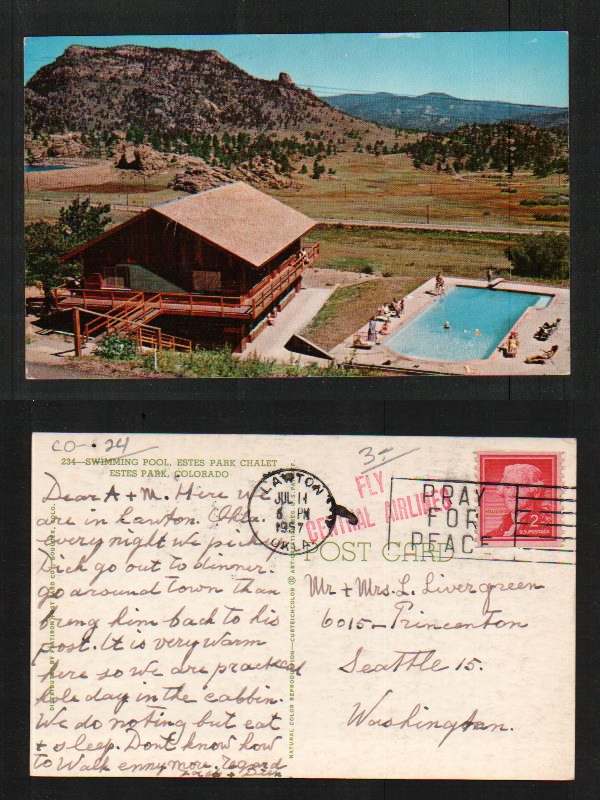 CO-24
3-
234—SWIMMING POOL, ESTES PARK CHALET
ESTES PARK, COLORADO
Dear A + M. Here we
are in Lawton. Okla.
every night we pick
Dick go out to dinner.
go around town than
bring him back to his
post. It is very warm
here so we are practiced
hole day in the cabbin.
We do noting but eat
+ sleep. Dont know how
to Walk enny mor. regard
LAWTON
JUL 14
6 PM
1957
OKLA.
FLY
CENTRAL AIRLINES
PRAY
FOR
PEACE
2¢
U.S. POSTAGE
POST CARD
Mr + Mrs. L. Livergreen
6015 - Princenton
Seattle 15.
Washington.
NATURAL COLOR REPRODUCTION—CURTEICHCOLOR ® ART